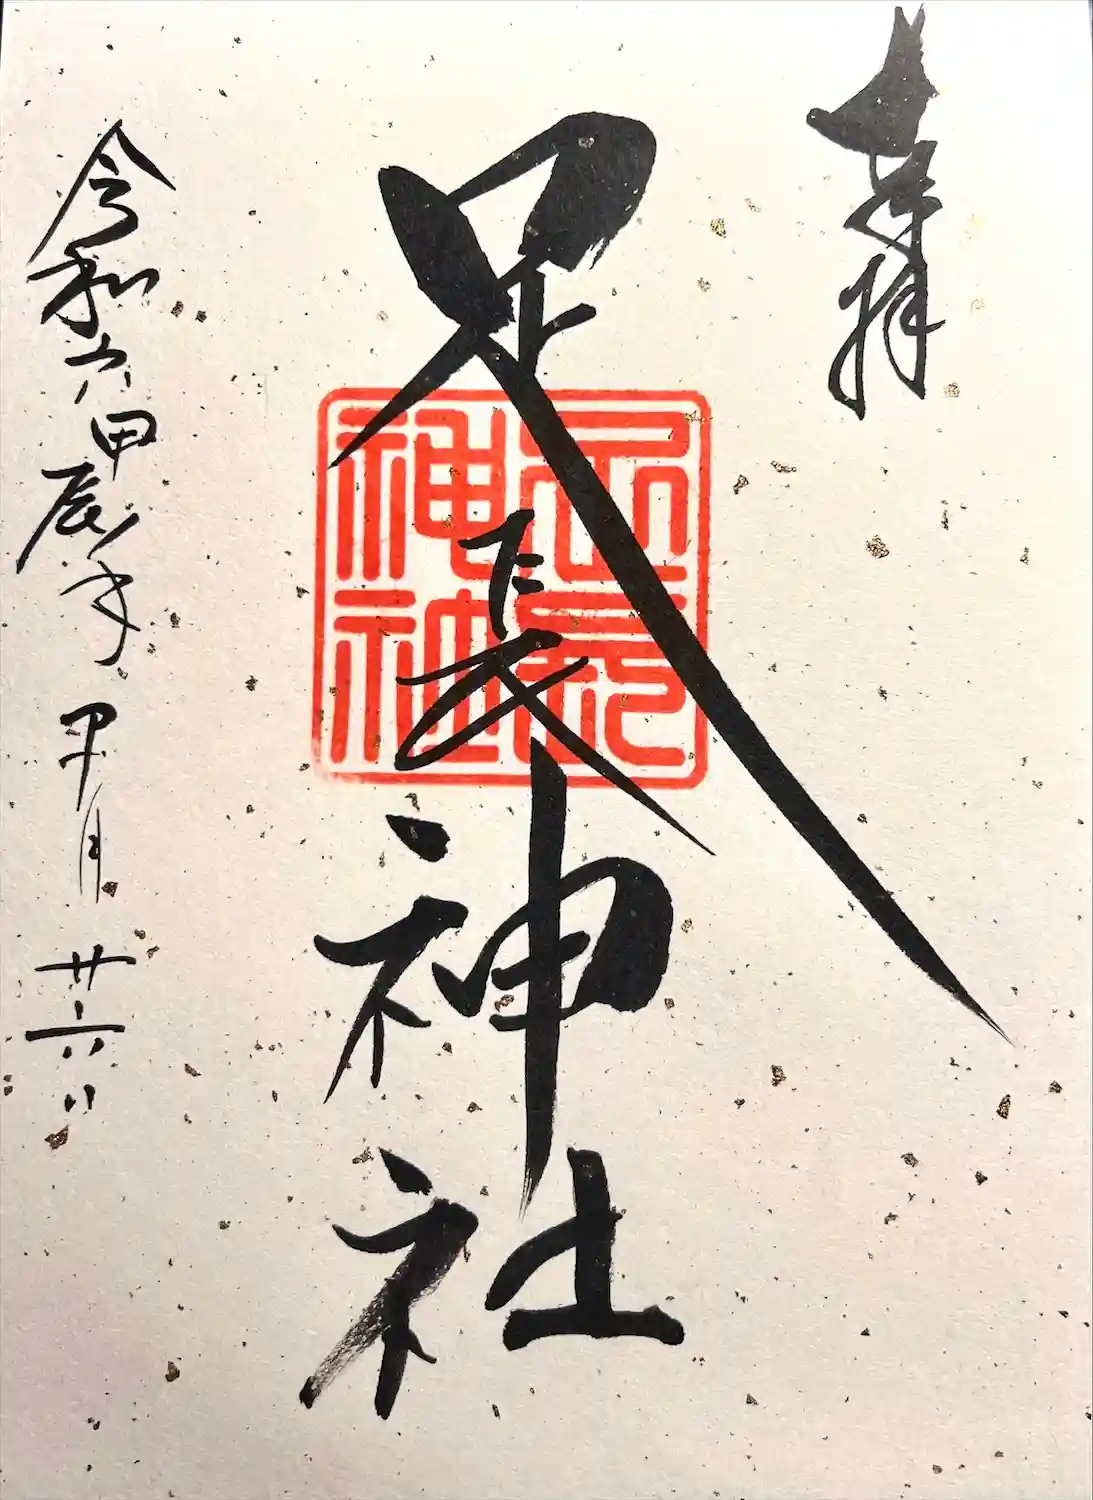 奉拝
足長神社
足長
神社
令和六甲辰年 月 廿六日